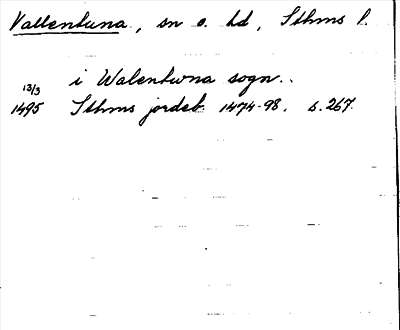 Vallentuna, sn o. hd, Sthms l.
i Walentwna sogn..
13/3
1495 Sthms jordeb. 1474-98. s. 267.